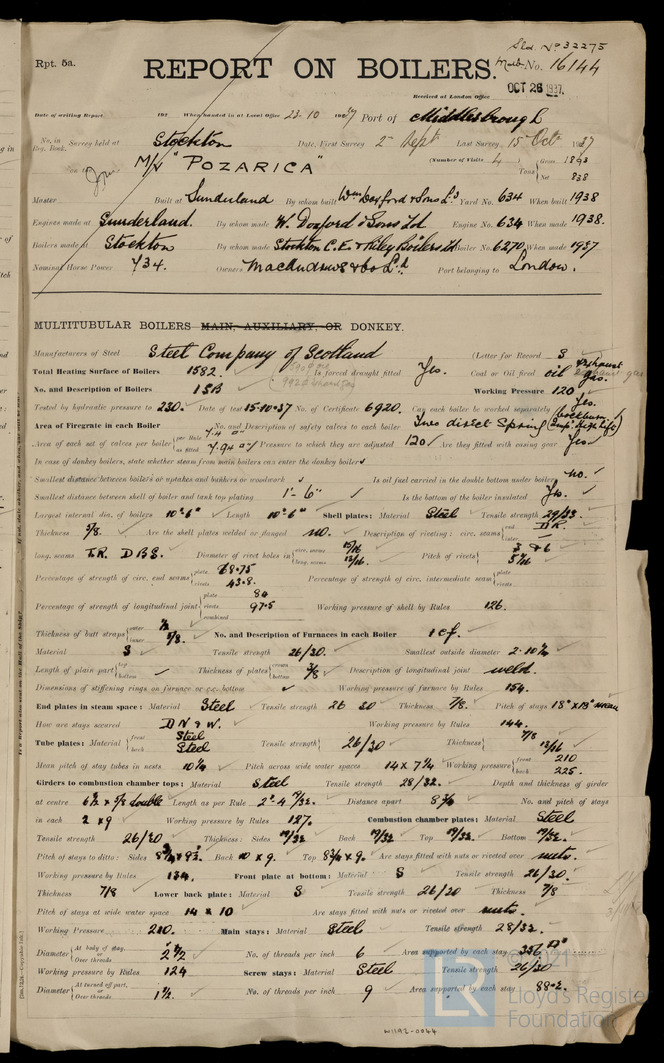 Sld. No 32275
Rpt. 5a.
REPORT ON BOILERS.
Mid No. 16144
Received at London Office OCT 26 1937
Date of writing Report 193 When handed in at Local Office 23.10 1937 Port of Middlesbrough
No. in Reg. Book. Survey held at Stockton Date, First Survey 2nd Sept Last Survey 15 Oct 1937
on the M/V "POZARICA" (Number of Visits 4) Tons Gross 1893 Net 838
Master Built at Sunderland By whom built Wm Doxford & Sons Ld Yard No. 634 When built 1938
Engines made at Sunderland. By whom made W. Doxford & Sons Ltd Engine No. 634 When made 1938.
Boilers made at Stockton By whom made Stockton C.E. & Riley Boilers Ltd Boiler No. 6270 When made 1937
Nominal Horse Power 734. Owners MacAndrews & Co Ld Port belonging to London.
MULTITUBULAR BOILERS MAIN, AUXILIARY, OR DONKEY.
Manufacturers of Steel Steel Company of Scotland (Letter for Record S
Total Heating Surface of Boilers 1582. Is forced draught fitted Yes. Coal or Oil fired oil & exhaust gas.
No. and Description of Boilers 1 SB Working Pressure 120
Tested by hydraulic pressure to 230. Date of test 15-10-37 No. of Certificate 6920. Can each boiler be worked separately Yes.
Area of Firegrate in each Boiler No. and Description of safety valves to each boiler Two direct Spring (Cockburn's Imp. High Lift)
Area of each set of valves per boiler per Rule 7.4 □" as fitted 7.94 □" Pressure to which they are adjusted 120 Are they fitted with easing gear Yes
In case of donkey boilers, state whether steam from main boilers can enter the donkey boiler ✓
Smallest distance between boilers or uptakes and bunkers or woodwork ✓ Is oil fuel carried in the double bottom under boilers no.
Smallest distance between shell of boiler and tank top plating 1'- 6" Is the bottom of the boiler insulated Yes.
Largest internal dia. of boilers 10'-6" Length 10'-6" Shell plates: Material Steel Tensile strength 29/33
Thickness 5/8. Are the shell plates welded or flanged no. Description of riveting: circ. seams end D.R. inter. —
long. seams T.R. D.B.S. Diameter of rivet holes in circ. seams 15/16 long. seams 13/16 Pitch of rivets 3 & 6 5 7/16
Percentage of strength of circ. end seams plate 68.75 rivets 43.8. Percentage of strength of circ. intermediate seam plate rivets
Percentage of strength of longitudinal joint plate 84 rivets 97.5 combined Working pressure of shell by Rules 126.
Thickness of butt straps outer 1/2 inner 5/8. No. and Description of Furnaces in each Boiler 1 cf.
Material S Tensile strength 26/30. Smallest outside diameter
Length of plain part top bottom Thickness of plates crown bottom 3/8 Description of longitudinal joint weld.
Dimensions of stiffening rings on furnace or c.c. bottom ✓ Working pressure of furnace by Rules 154.
End plates in steam space: Material Steel Tensile strength 26 30 Thickness 7/8. Pitch of stays 18" x 18" mean
How are stays secured D N & W. Working pressure by Rules 144.
Tube plates: Material front Steel back Steel Tensile strength 26/30 Thickness 7/8 13/16
Mean pitch of stay tubes in nests 10 1/4 Pitch across wide water spaces 14 x 7 1/4 Working pressure front 210 back 225.
Girders to combustion chamber tops: Material Steel Tensile strength 28/32. Depth and thickness of girder
at centre 6 1/2 x 5/8 double Length as per Rule Distance apart 8 3/4 No. and pitch of stays
in each 2 x 9 Working pressure by Rules 127. Combustion chamber plates: Material Steel
Tensile strength 26/30 Thickness: Sides 19/32 Back 19/32 Top 19/32. Bottom 19/32.
Pitch of stays to ditto: Sides Back 10 x 9. Top 8 3/4 x 9. Are stays fitted with nuts or riveted over nuts.
Working pressure by Rules 134. Front plate at bottom: Material S Tensile strength 26/30.
Thickness 7/8 Lower back plate: Material S Tensile strength 26/30 Thickness 7/8
Pitch of stays at wide water space 14 x 10 Are stays fitted with nuts or riveted over nuts.
Working Pressure 210. Main stays: Material Steel Tensile strength 28/32.
Diameter At body of stay, or Over threads 2 1/2 No. of threads per inch 6 Area supported by each stay 356 □"
Working pressure by Rules 124 Screw stays: Material Steel Tensile strength 26/30
Diameter At turned off part, or Over threads 1 1/2. No. of threads per inch 9 Area supported by each stay 88.2.
© 2021
LR
Lloyd's Register
Foundation
W1192-0044